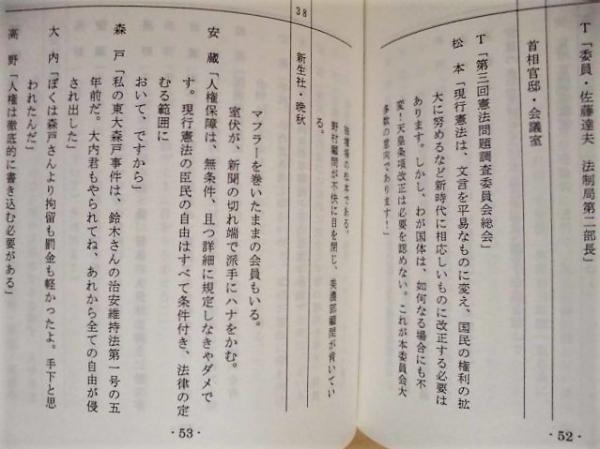 T「委員・佐藤達夫　法制局第二部長」
首相官邸・会議室
T「第三回憲法問題調査委員会総会」
松　本「現行憲法は、文言を平易なものに変え、国民の権利の拡
大に努めるなど新時代に相応しいものに改正する必要は
あります。しかし、わが国体は、如何なる場合にも不
変！天皇条項改正は必要を認めない。これが本委員会大
多数の意向であります！」
独壇場の松本である。
野村顧問が不快に目を閉じ、美濃部顧問が肯いてい
る。
・52・
38
新生社・晩秋
マフラーを巻いたままの会員もいる。
室伏が、新聞の切れ端で派手にハナをかむ。
安　蔵「人権保障は、無条件、且つ詳細に規定しなきゃダメで
す。現行憲法の臣民の自由はすべて条件付き、法律の定
むる範囲に
おいて、ですから」
森　戸「私の東大森戸事件は、鈴木さんの治安維持法第一号の五
年前だ。大内君もやられてね、あれから全ての自由が侵
され出した」
大　内「ぼくは森戸さんより拘留も罰金も軽かったよ。手下と思
われたんだ」
高　野「人権は徹底的に書き込む必要がある」
・53・